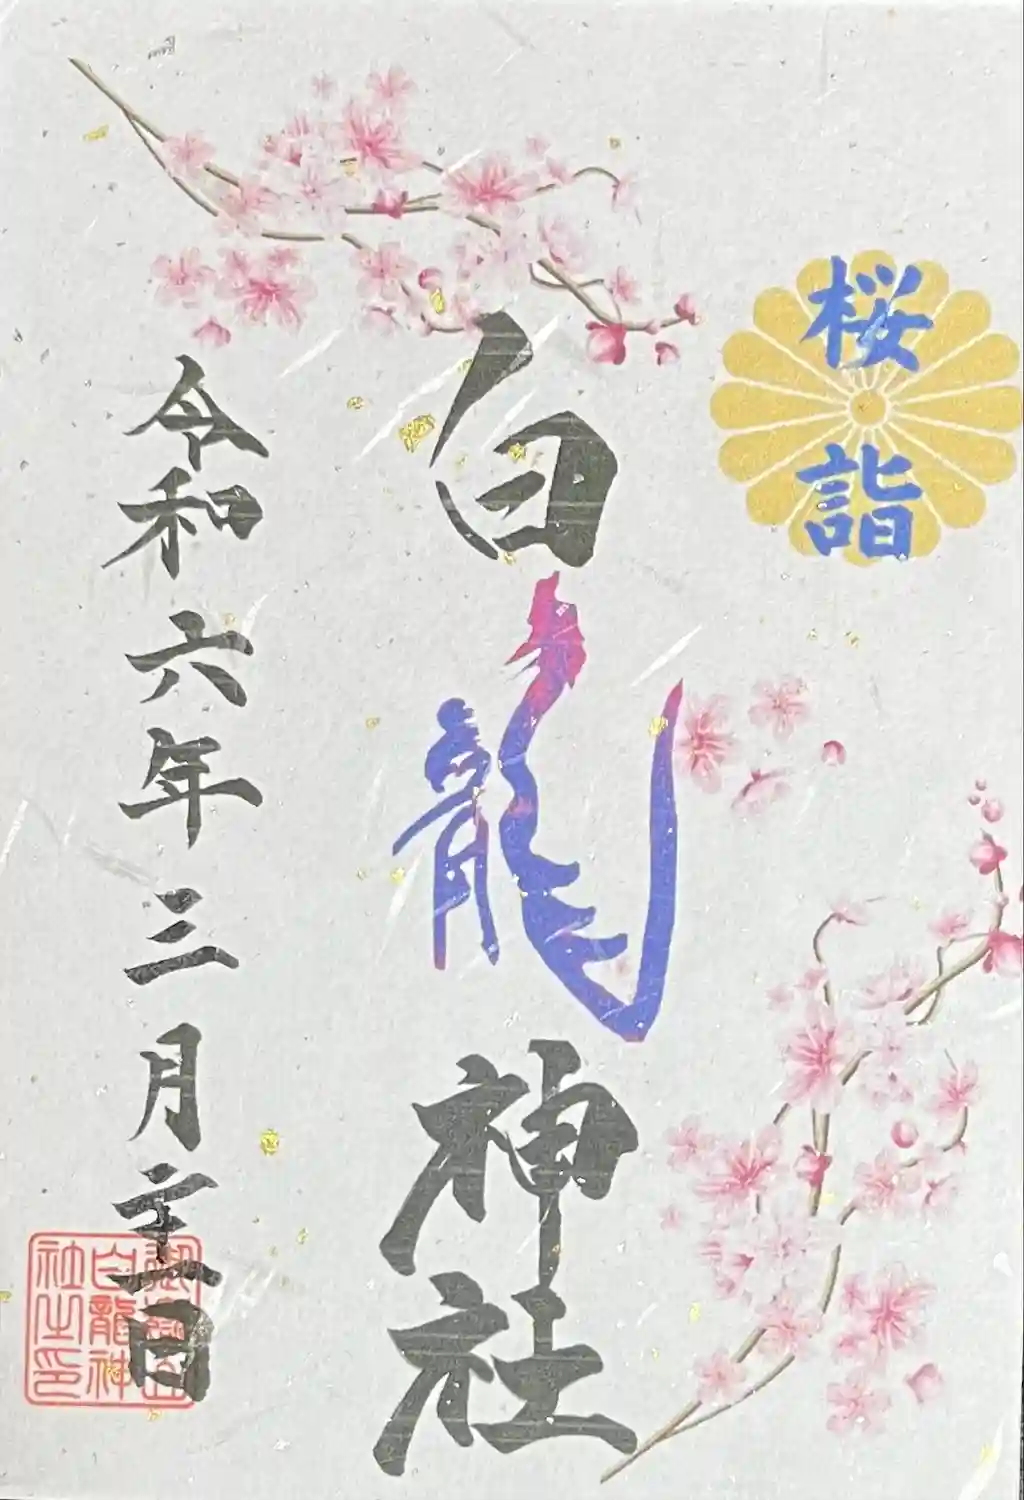 桜詣
白龍神社
令和六年三月二十一日
御嶽山
白龍神
社之印